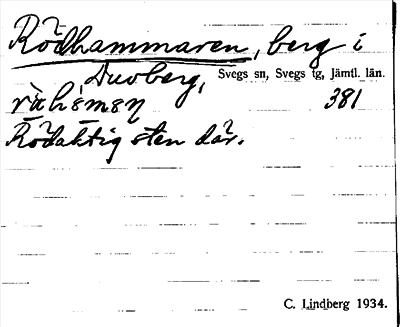 Rödhammaren, berg i
Duvberg, Svegs sn, Svegs tg, Jämtl. län.
381
Rödaktig sten där.
C. Lindberg 1934.